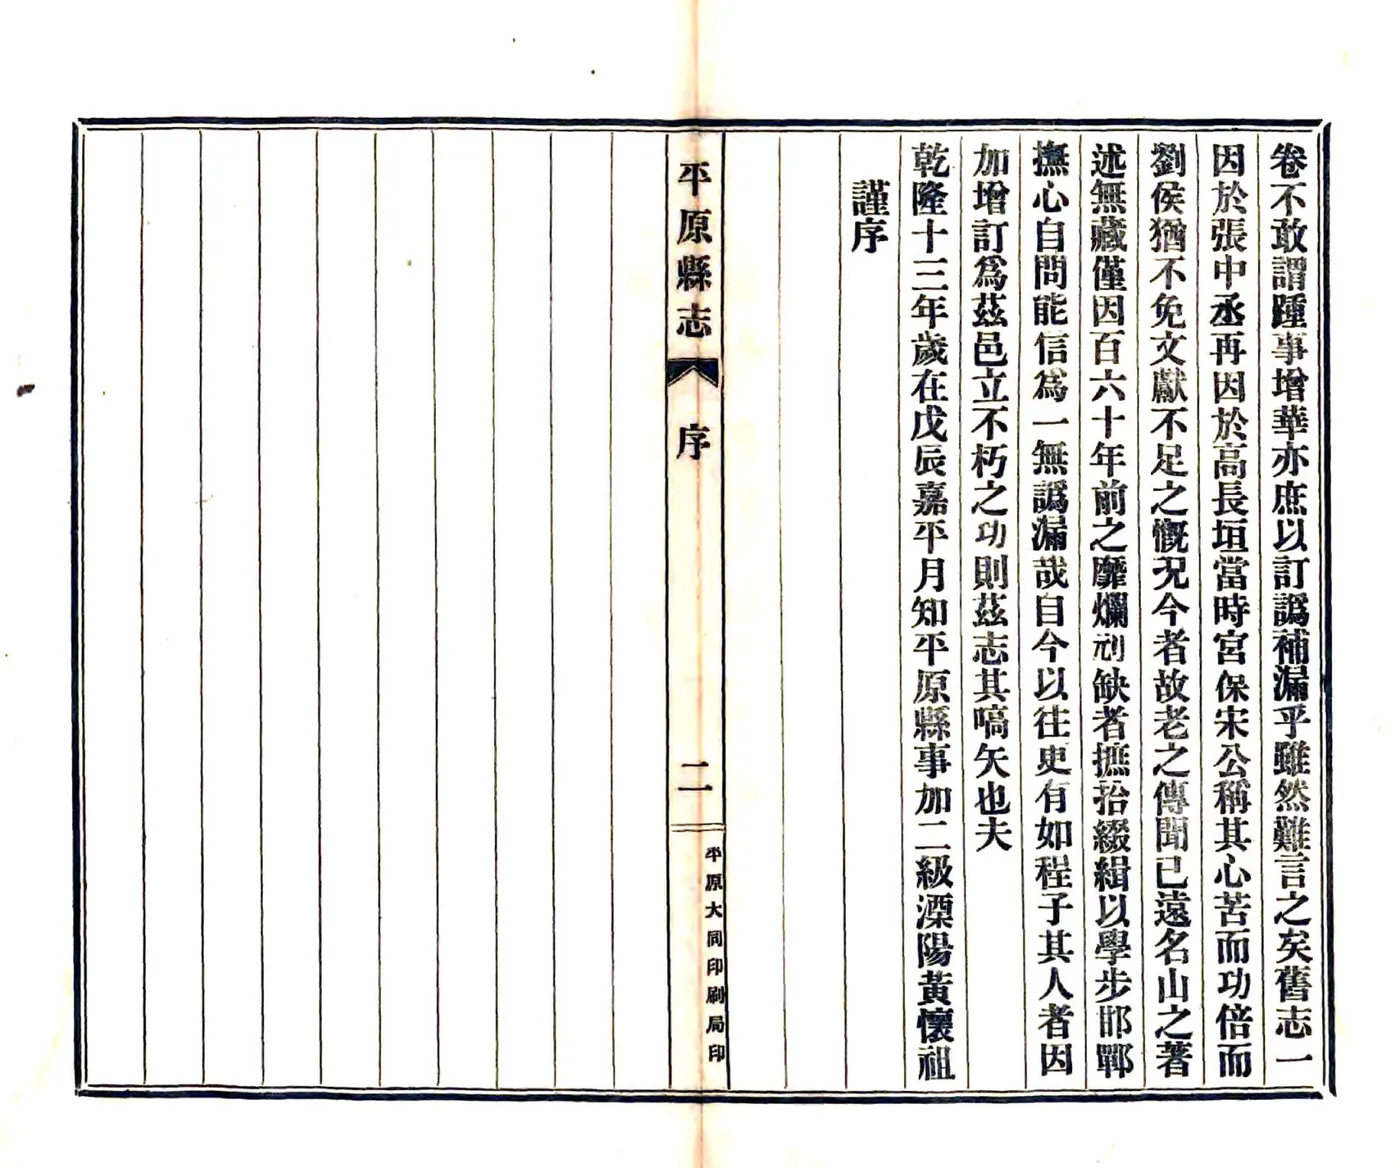 卷不敢謂踵事增華亦庶以訂譌補漏乎雖然難言之矣舊志一
因於張中丞再因於高長垣當時宮保宋公稱其心苦而功倍而
劉侯猶不免文獻不足之慨況今者故老之傳聞已遠名山之著
述無藏僅因百六十年前之靡爛刓缺者摭拾綴緝以學步邯鄲
撫心自問能信爲一無譌漏哉自今以往更有如程子其人者因
加增訂爲茲邑立不朽之功則茲志其嚆矢也夫
乾隆十三年歲在戊辰嘉平月知平原縣事加二級溧陽黃懷祖
謹序
平原縣志
序
二
平原大同印刷局印